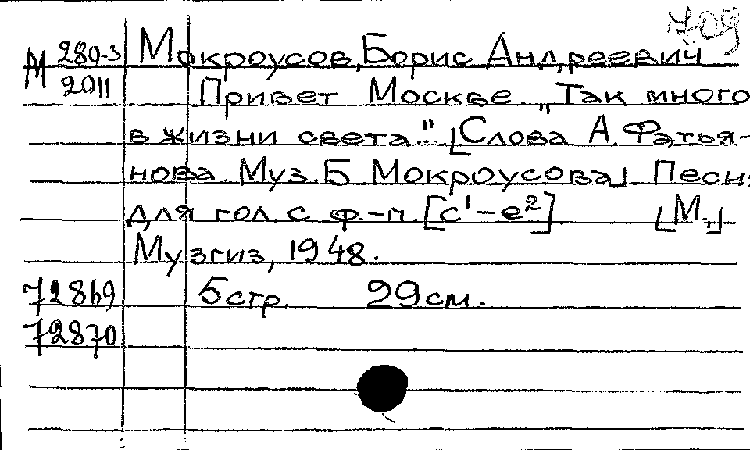 709
М 280-3 Мокроусов, Борис Андреевич
2011 Привет Москве „Так много
в жизни света." [Слова А. Фатья-
нова Муз. Б Мокроусова] Песня
для гол. с ф.-п. [c¹-e²] [М.,]
Музгиз, 1948.
72869 5 стр. 29 см.
72870